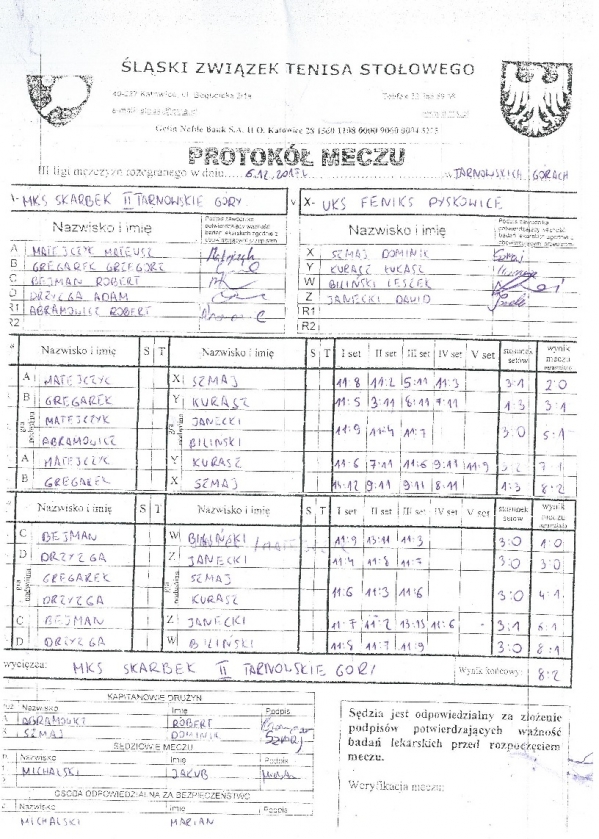 ŚLĄSKI ZWIĄZEK TENISA STOŁOWEGO
PROTOKÓŁ MECZU
III ligi mężczyzn rozegranego w dniu 6.12.2017r. w TARNOWSKICH GÓRACH
MKS SKARBEK II TARNOWSKIE GÓRY v X- UKS FENIKS PYSKOWICE
Nazwisko i imię Nazwisko i imię
A MATEJCZYK MATEUSZ X SZMAJ DOMINIK
B GREGAREK GRZEGORZ Y KURASZ ŁUKASZ
C BEJMAN ROBERT W BILIŃSKI LESZEK
D DRZYZGA ADAM Z JANECKI DAWID
R1 ABRAMOWICZ ROBERT R1
R2 R2
Nazwisko i imię S T Nazwisko i imię S T I set II set III set IV set V set stosunek setów wynik meczu
A MATEJCZYK X SZMAJ 11:8 11:2 5:11 11:3 3:1 2:0
B GREGAREK Y KURASZ 11:5 3:11 8:11 7:11 1:3 3:1
MATEJCZYK JANECKI
gra podwójna gra podwójna 11:9 11:4 11:7 3:0 5:1
ABRAMOWICZ BILINSKI
A MATEJCZYK Y KURASZ 11:6 7:11 11:6 9:11 11:9 3:2 7:1
B GREGAREK X SZMAJ 14:12 9:11 9:11 8:11 1:3 8:2
Nazwisko i imię S T Nazwisko i imię S T I set II set III set IV set V set stosunek setów wynik
C BEJMAN W BILIŃSKI 11:9 13:11 11:3 3:0 1:0
D DRZYZGA Z JANECKI 11:4 11:8 11:7 3:0 3:0
GREGAREK SZMAJ
gra podwójna gra podwójna 11:6 11:3 11:6 3:0 4:1
DRZYZGA KURASZ
C BEJMAN Z JANECKI 11:7 11:2 13:15 11:6 - 3:1 6:1
D DRZYZGA W BILIŃSKI 11:5 11:7 11:9 3:0 8:1
wycięzca: MKS SKARBEK II TARNOWSKIE GÓRY Wynik końcowy: 8:2
KAPITANOWIE DRUŻYN
Nazwisko Imię Podpis
ROBERT
SZMAJ DOMINIK
SĘDZIOWIE MECZU
Nazwisko Imię Podpis
MICHALSKI JAKUB
OSOBA ODPOWIEDZIALNA ZA BEZPIECZEŃSTWO
Nazwisko Imię Podpis
MICHALSKI MARIAN
Sędzia jest odpowiedzialny za złożenie
podpisów potwierdzających ważność
badań lekarskich przed rozpoczęciem
meczu.
Weryfikacja meczu: